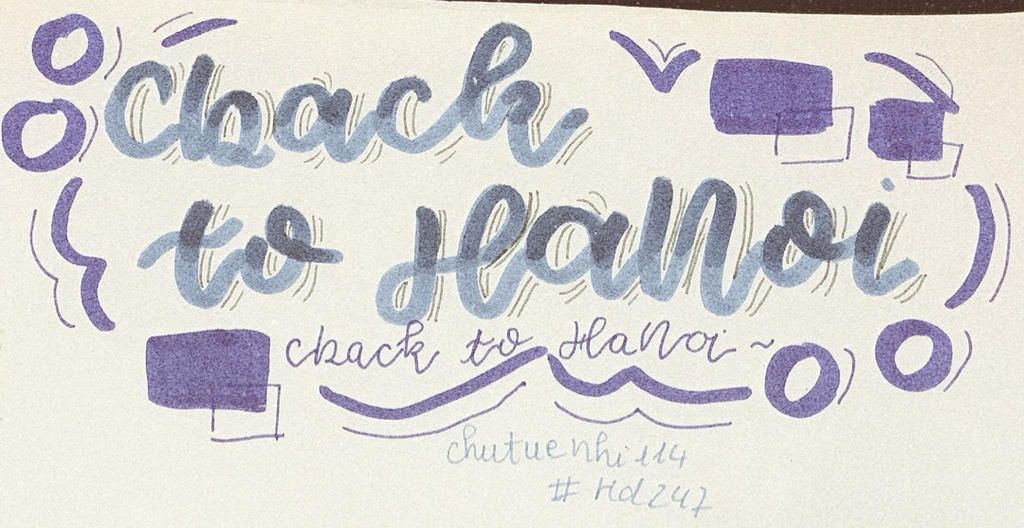 cback
to HaNoi
cback to HaNoi ~
chutuenhi114
# Hd247